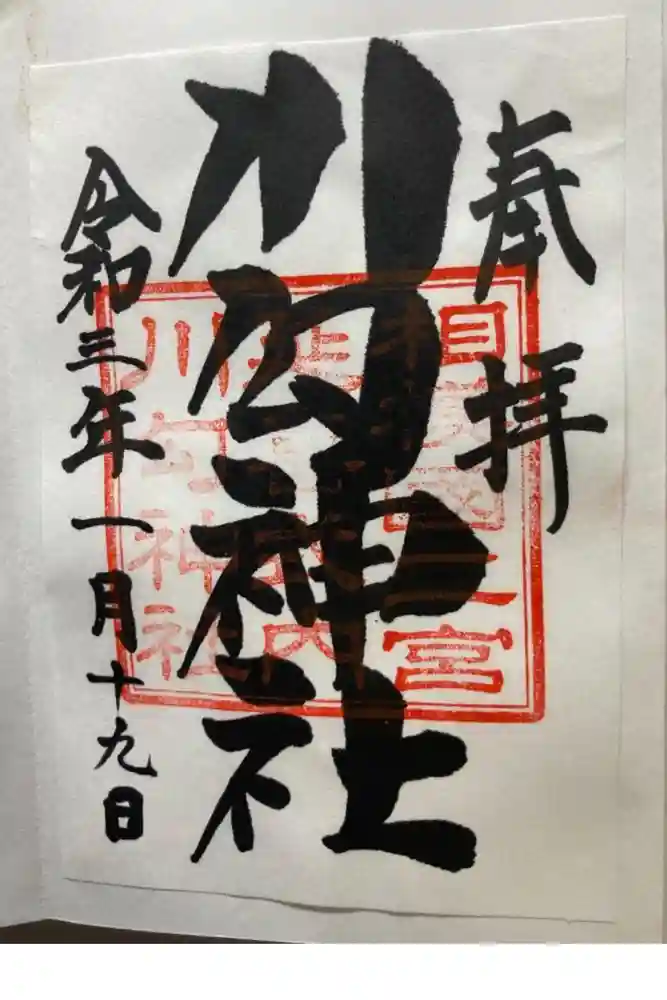 奉拝
川勾神社
令和三年一月十九日
相模國二宮
延喜式内
川勾神社